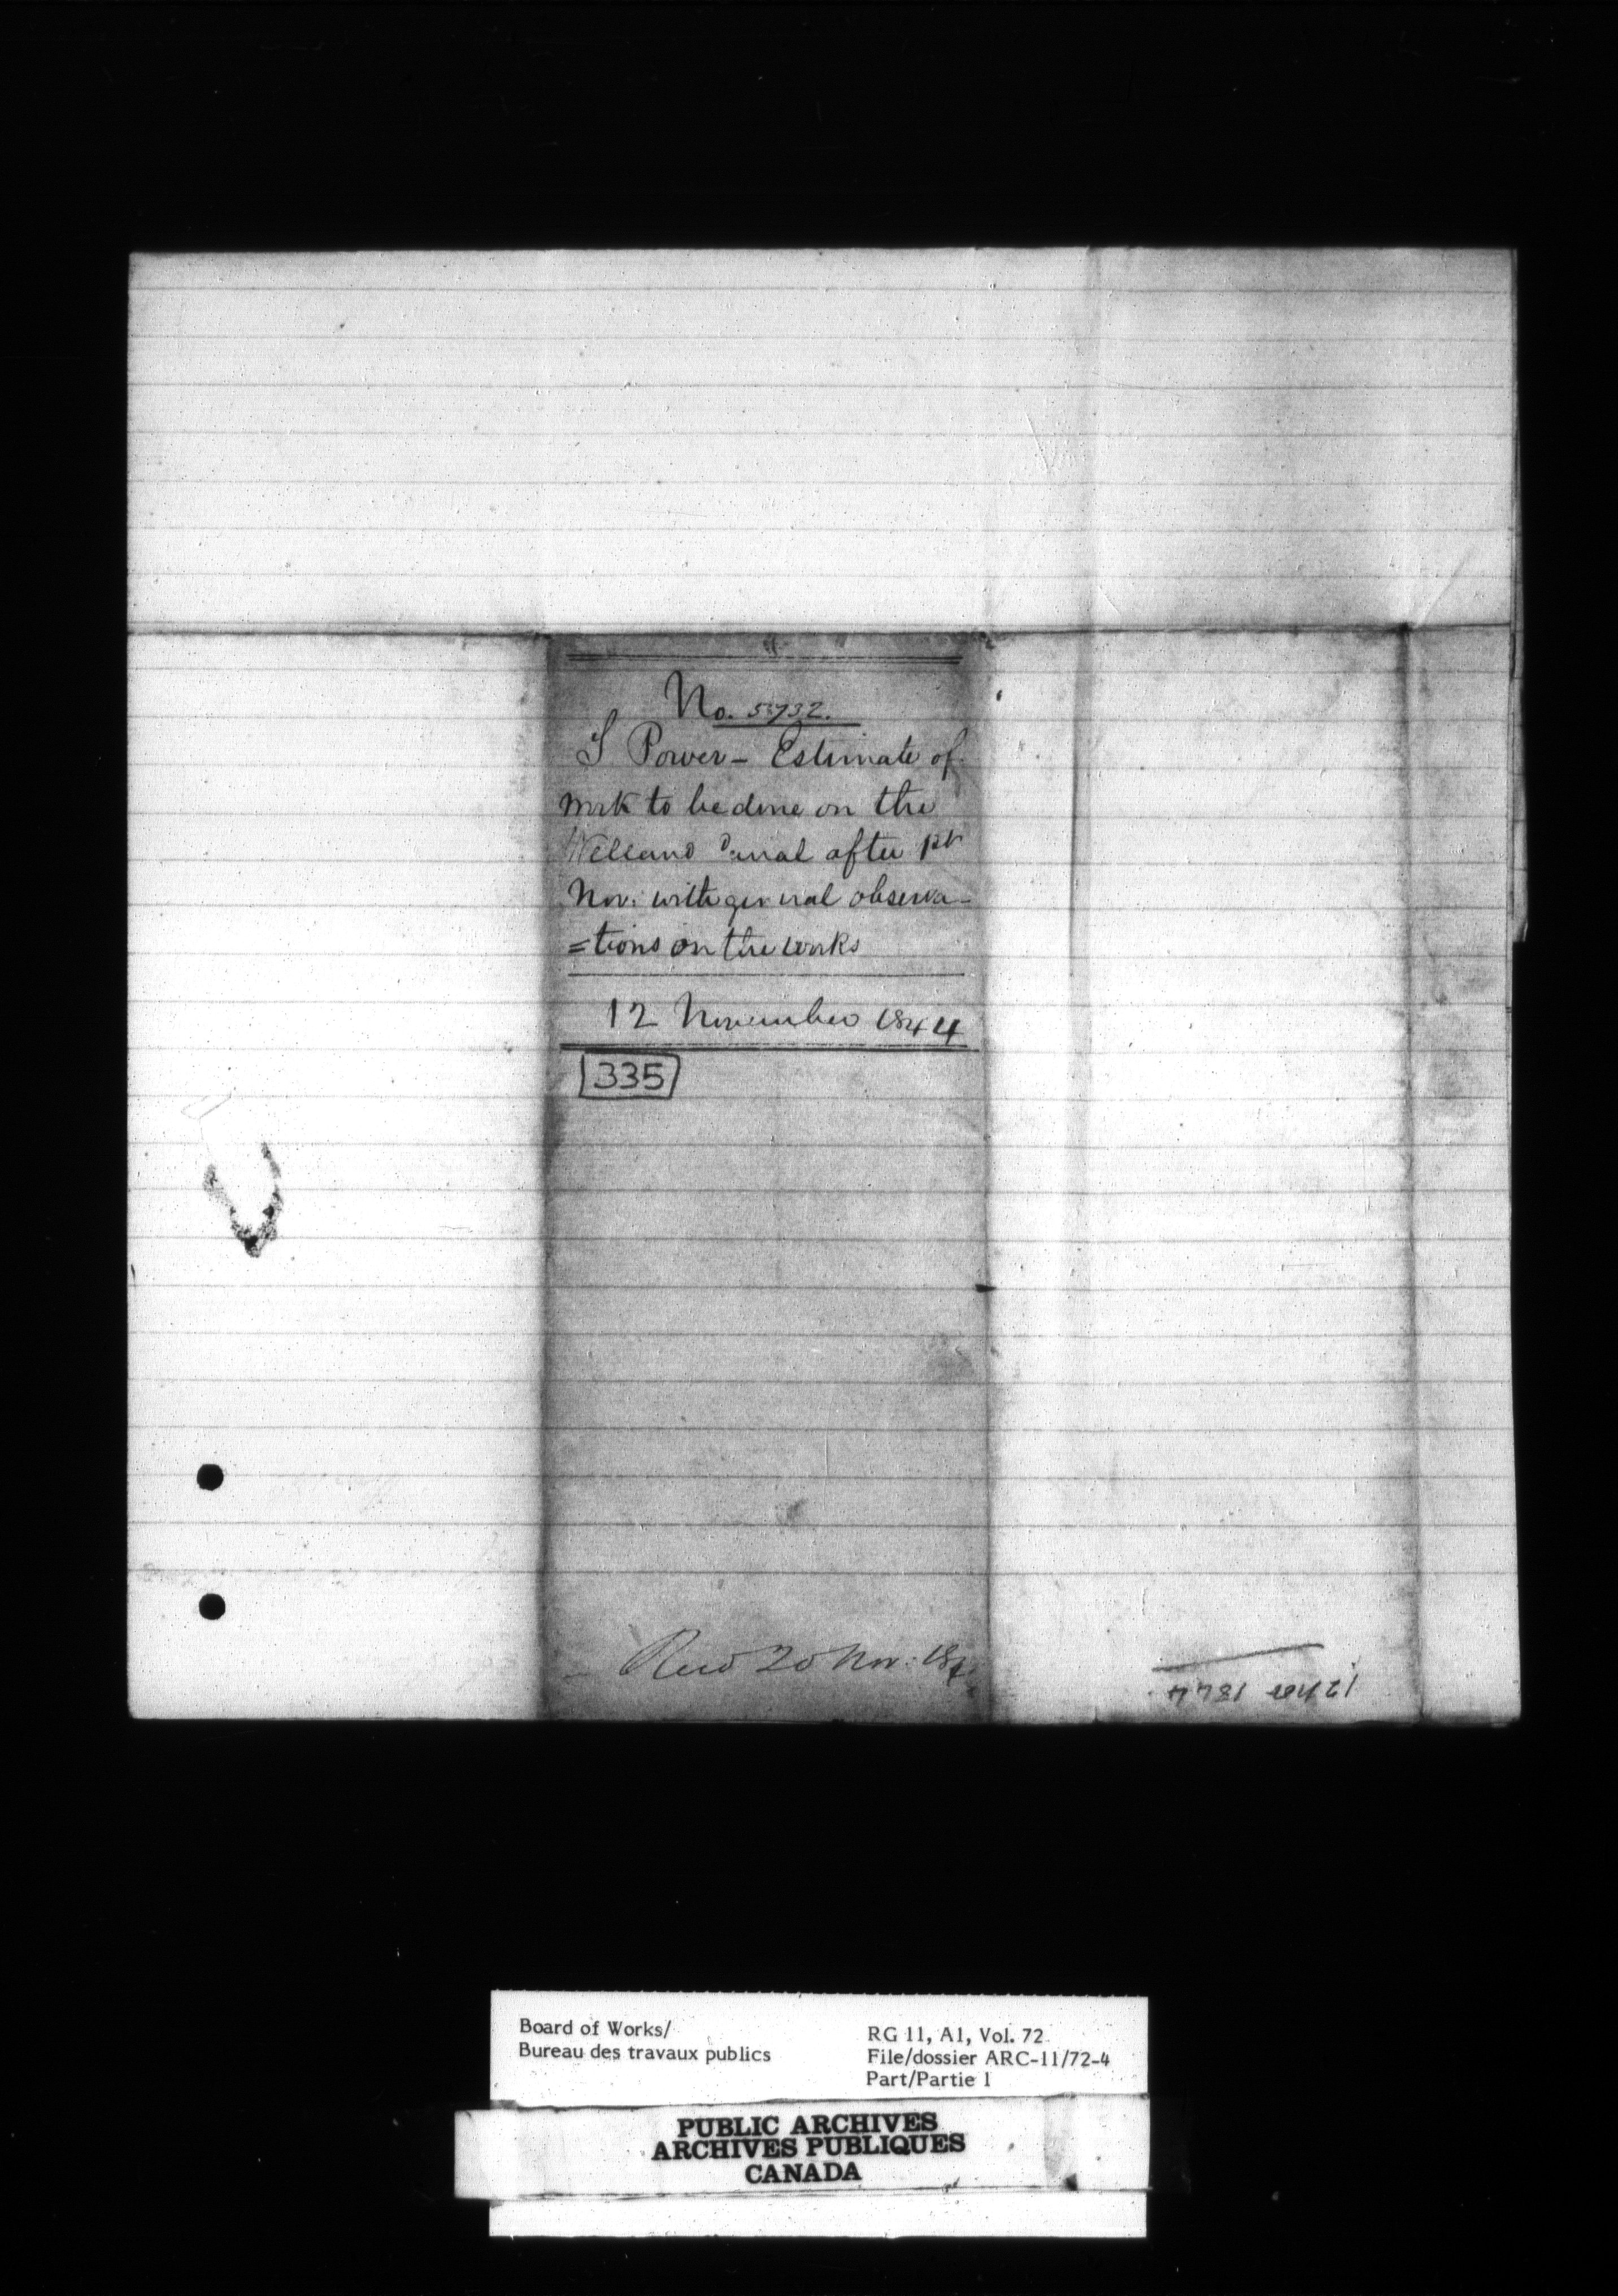 No. 5732.
S Power - Estimate of
work to be done on the
Welland Canal after 1st
Nov: with general observa-
=tions on the works
12 November 1844
335
Recd 20 Nov: 184
12 Nov 1844
Board of Works/
Bureau des travaux publics
RG 11, A1, Vol. 72
File/dossier ARC-11/72-4
Part/Partie 1
PUBLIC ARCHIVES
ARCHIVES PUBLIQUES
CANADA